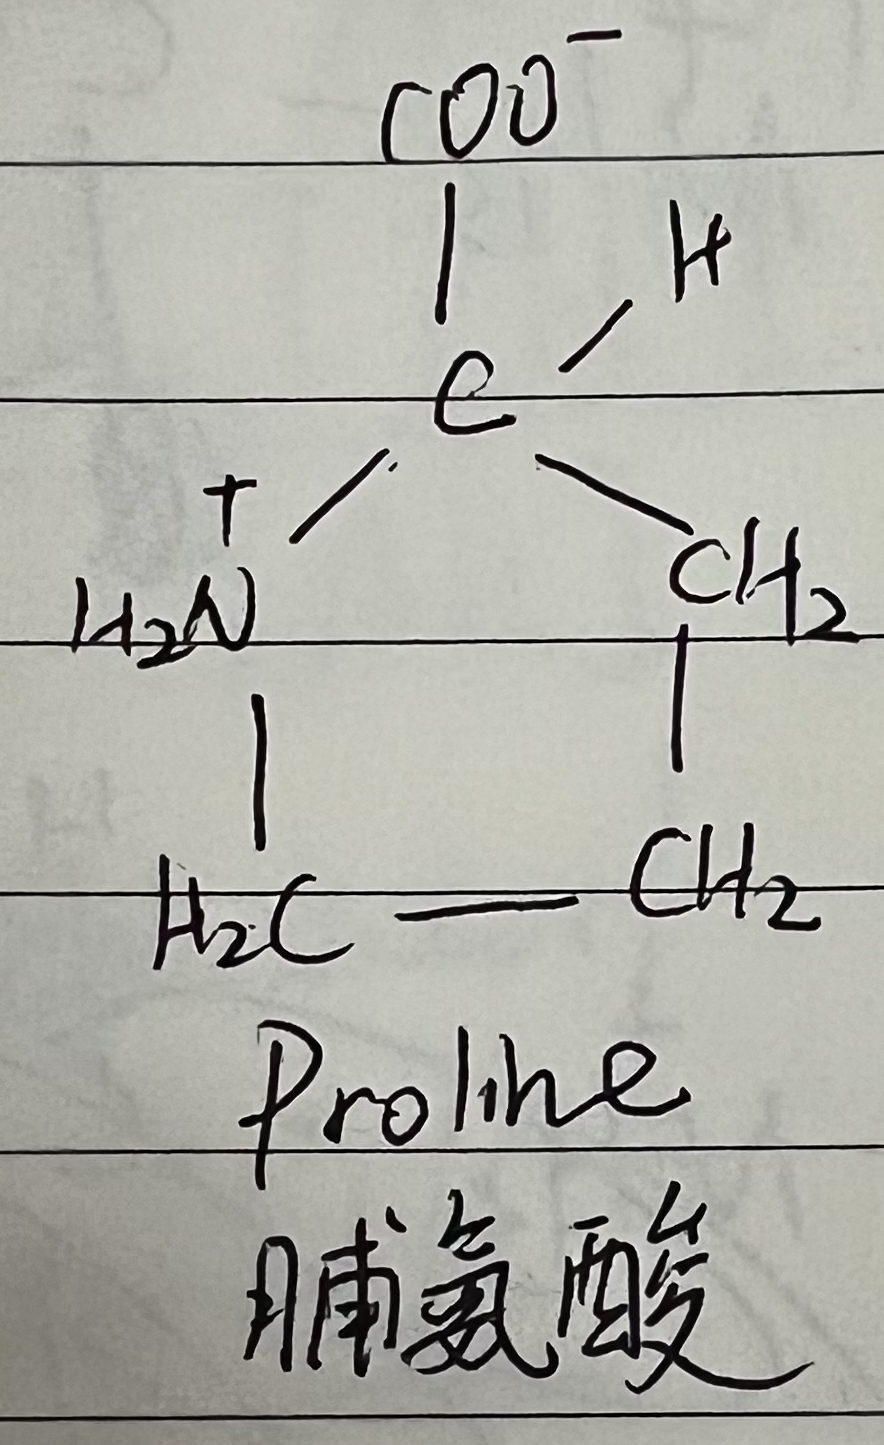 COO⁻
H
C
+
H₂N
CH₂
H₂C
CH₂
Proline
脯氨酸